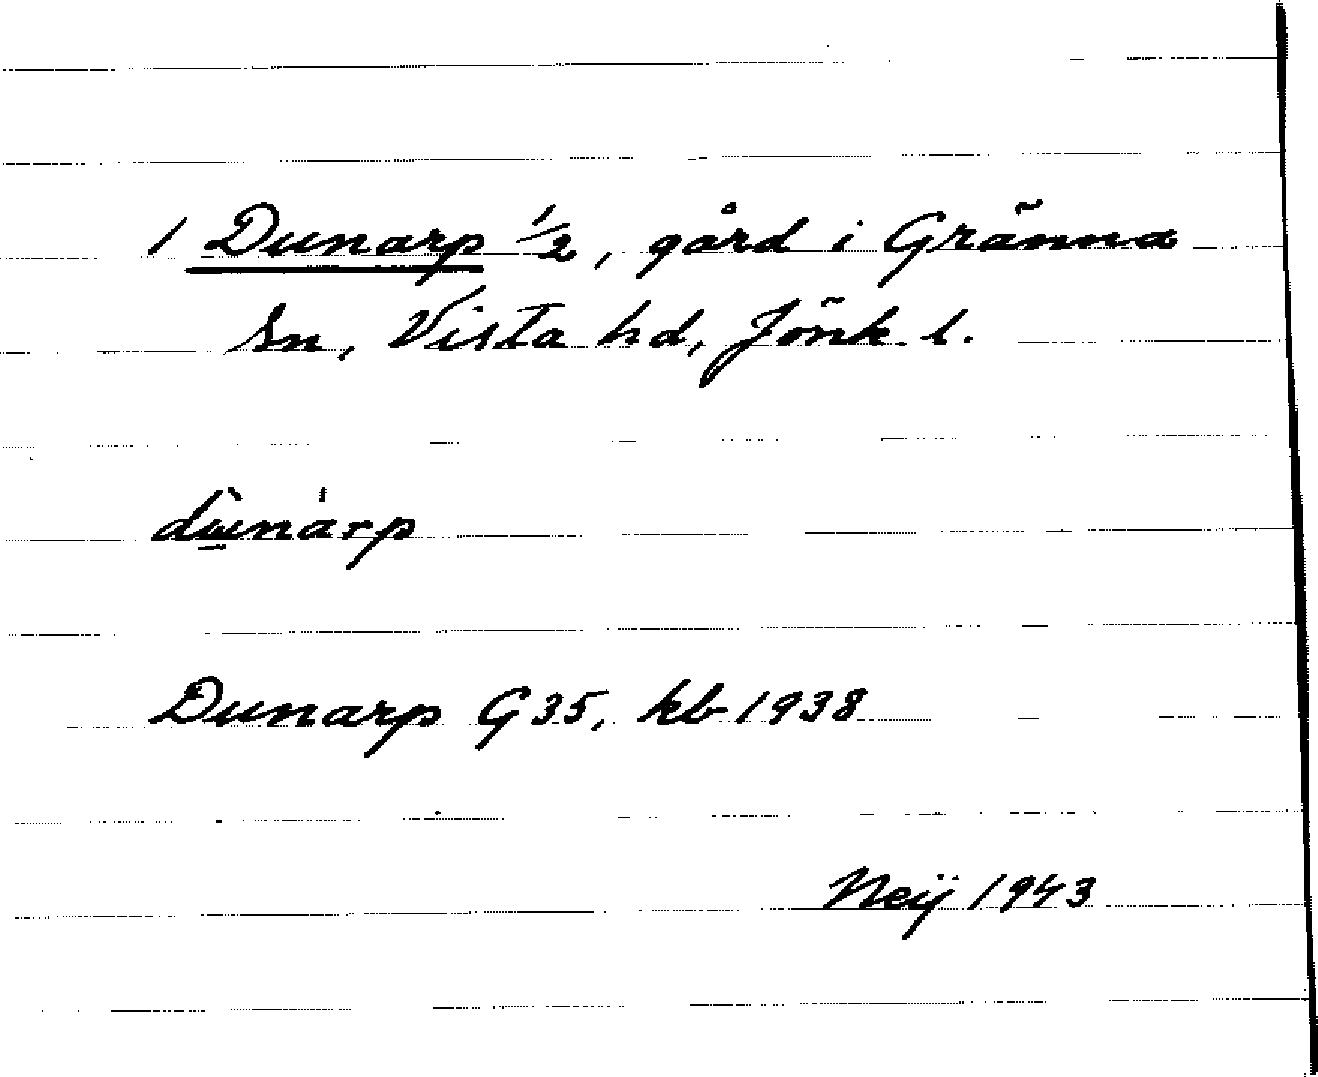 1 Dunarp 1/2, gård i Gränna
sn, Vista hd, Jönk. l.
dùnárp
Dunarp G35, kb 1938
Neij 1943